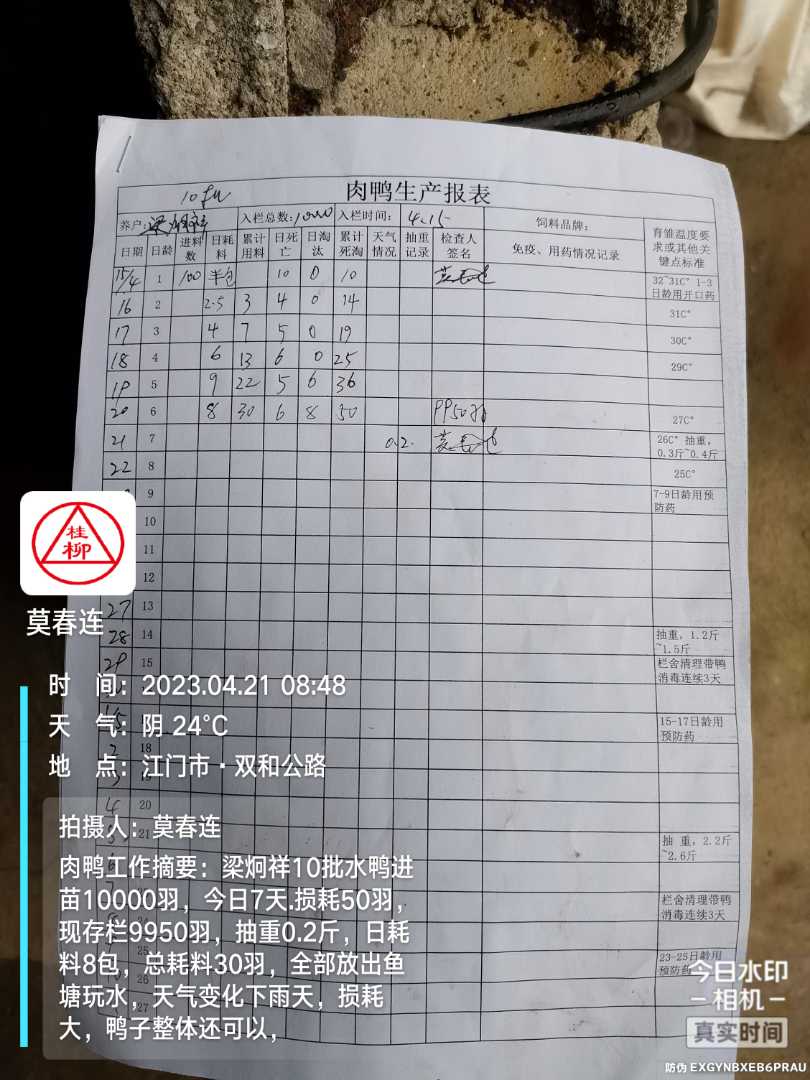 10批
肉鸭生产报表
养户: 入栏总数:10000 入栏时间: 4.15 饲料品牌: 育雏温度要求或其他关键点标准
日期 日龄 进料数 日耗料 累计用料 日死亡 日淘汰 累计死淘 天气情况 抽重记录 检查人签名 免疫、用药情况记录
15/4 1 100 半包 10 0 10 32~31C° 1-3日龄用开口药
16 2 2.5 3 4 0 14 31C°
17 3 4 7 5 0 19 30C°
18 4 6 13 6 0 25 29C°
19 5 9 22 5 6 36
20 6 8 30 6 8 50 PP50羽 27C°
21 7 0.2. 26C° 抽重,0.3斤~0.4斤
22 8 25C°
9 7-9日龄用预防药
10
11
12
27 13
28 14 抽重,1.2斤~1.5斤
29 15 栏舍清理带鸭消毒连续3天
15-17日龄用预防药
2 18
3
4 20
21 抽 重,2.2斤~2.6斤
栏舍清理带鸭消毒连续3天
24
25 23-25日龄用预防药
27
桂柳
莫春连
时 间: 2023.04.21 08:48
天 气: 阴 24°C
地 点: 江门市·双和公路
拍摄人: 莫春连
肉鸭工作摘要: 梁炯祥10批水鸭进
苗10000羽，今日7天.损耗50羽，
现存栏9950羽，抽重0.2斤，日耗
料8包，总耗料30羽，全部放出鱼
塘玩水，天气变化下雨天，损耗
大，鸭子整体还可以，
今日水印
-相机-
真实时间
防伪 EXGYNBXEB6PRAU